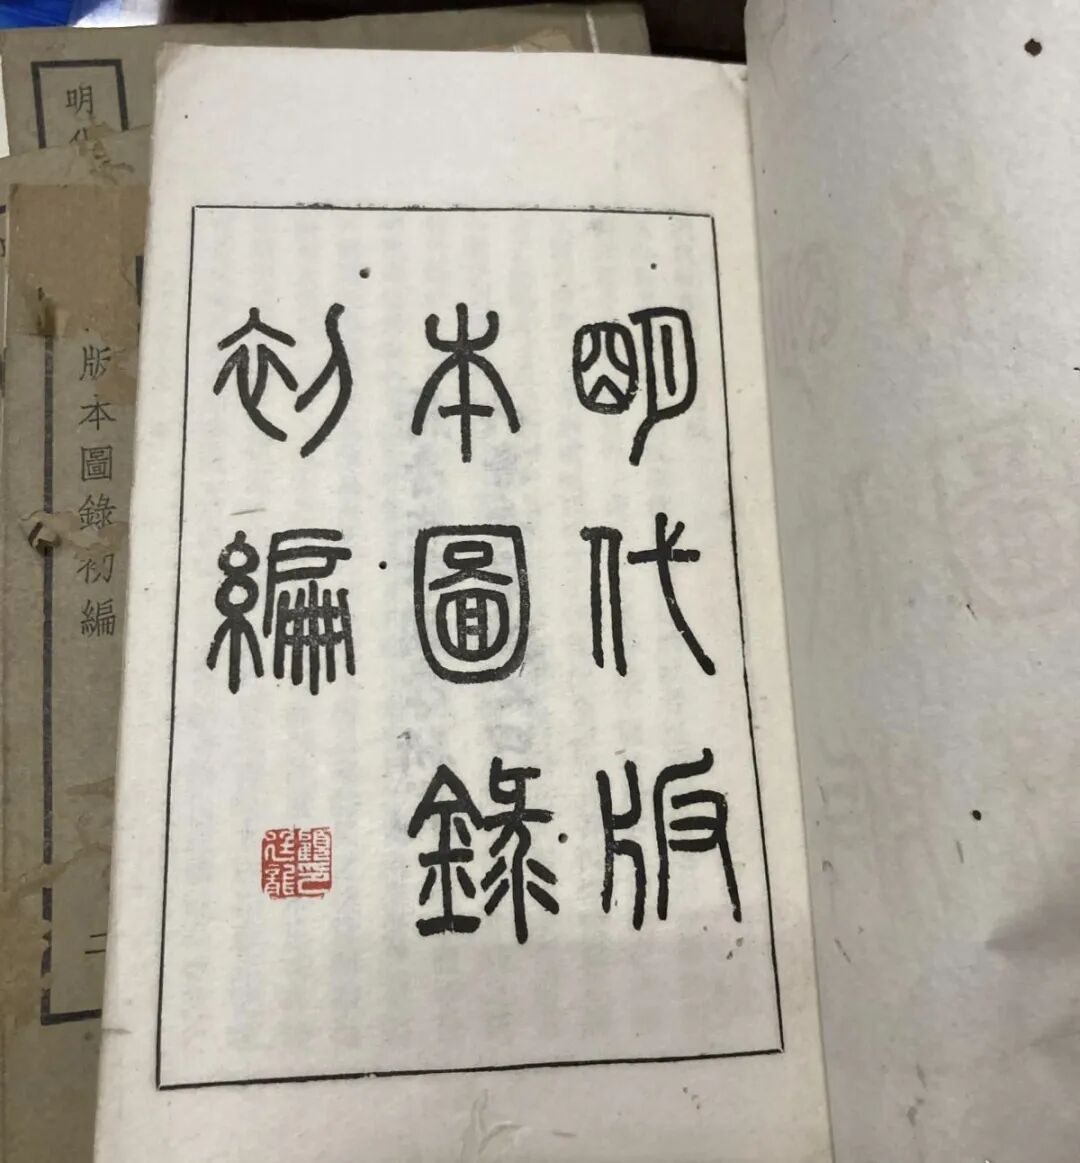 明代版
本圖錄
初編
顧印
廷龍
明代
版本圖錄初編
二